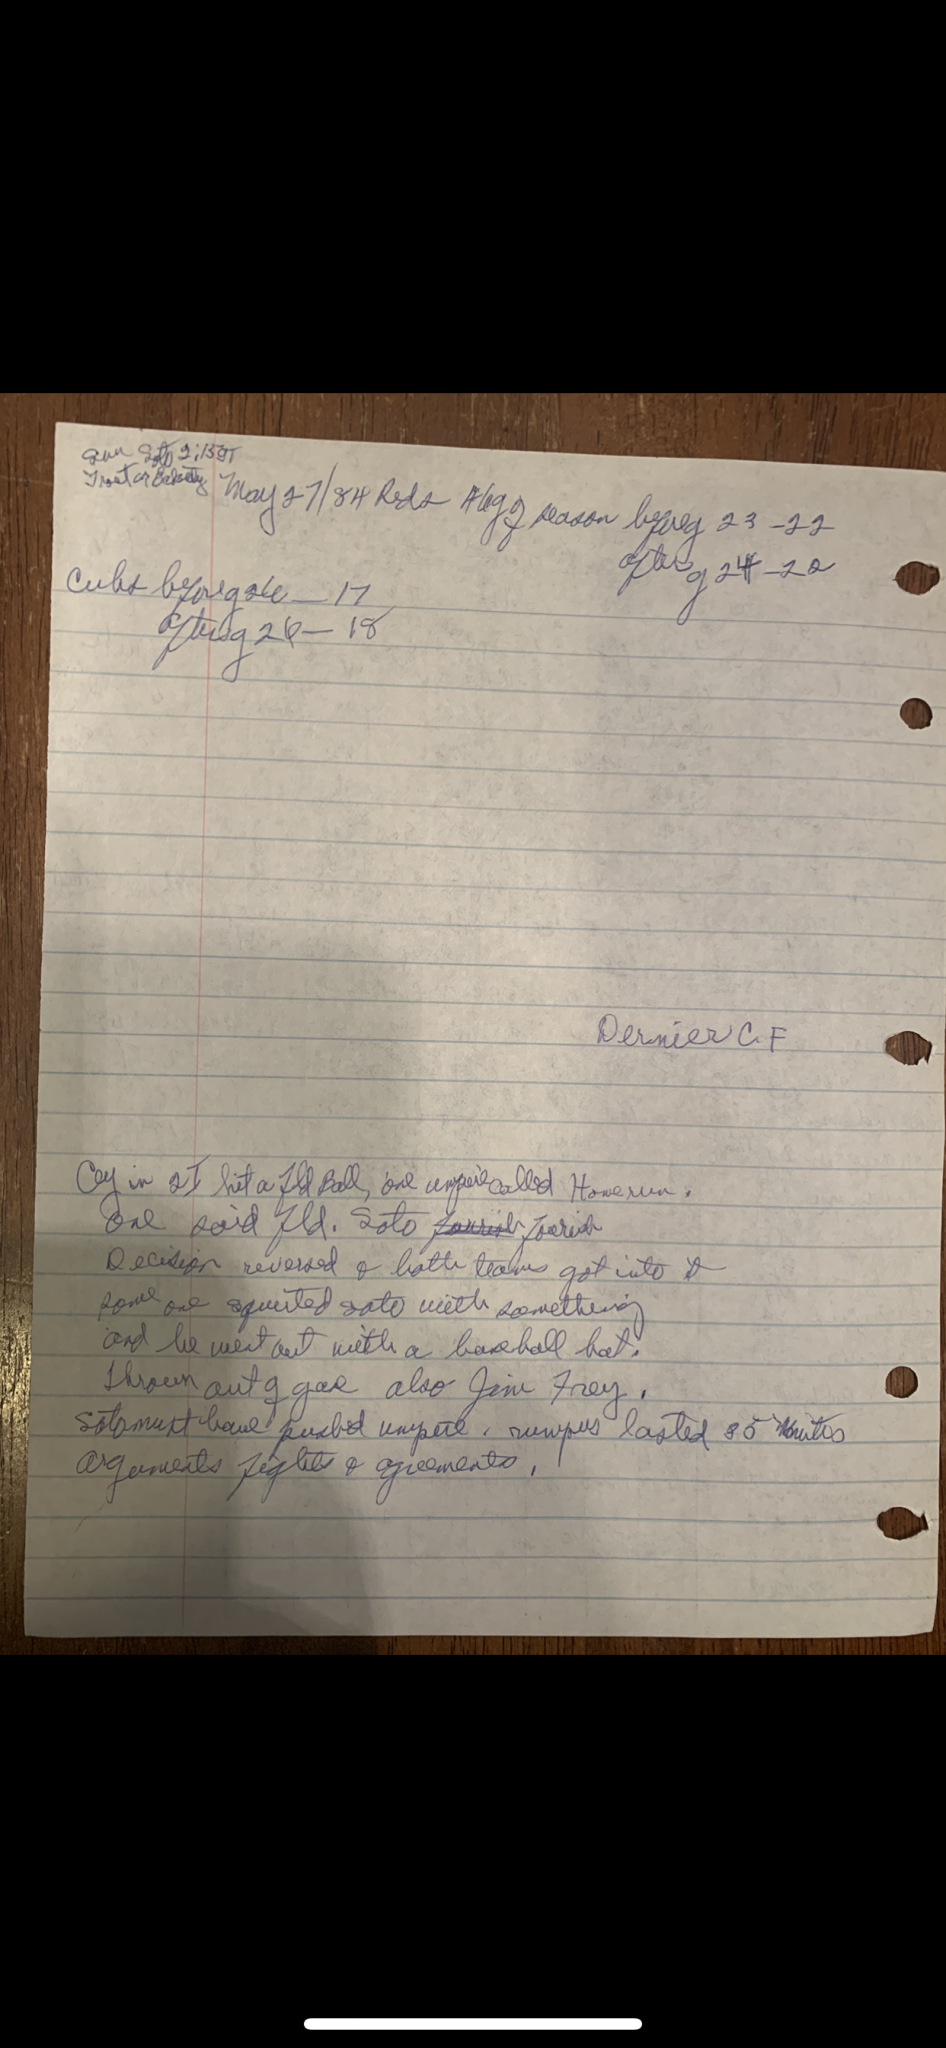 Sun Soto 2:15 ST
Trout or
May 27/84 Reds #6 g of season before g 23-22
after g 24-22
Cubs before g 26-17
after g 26-18
Dernier C.F
Cey in 2I hit a Fld Ball, one umpire called Homerun.
One said Fld. Soto
Decision reversed & both teams got into it
some one squirted soto with something
and he went out with a baseball bat.
Thrown out of game also Jim Frey.
Soto must have pushed umpire. rumpus lasted 35 Minutes
arguments fights & agreements.